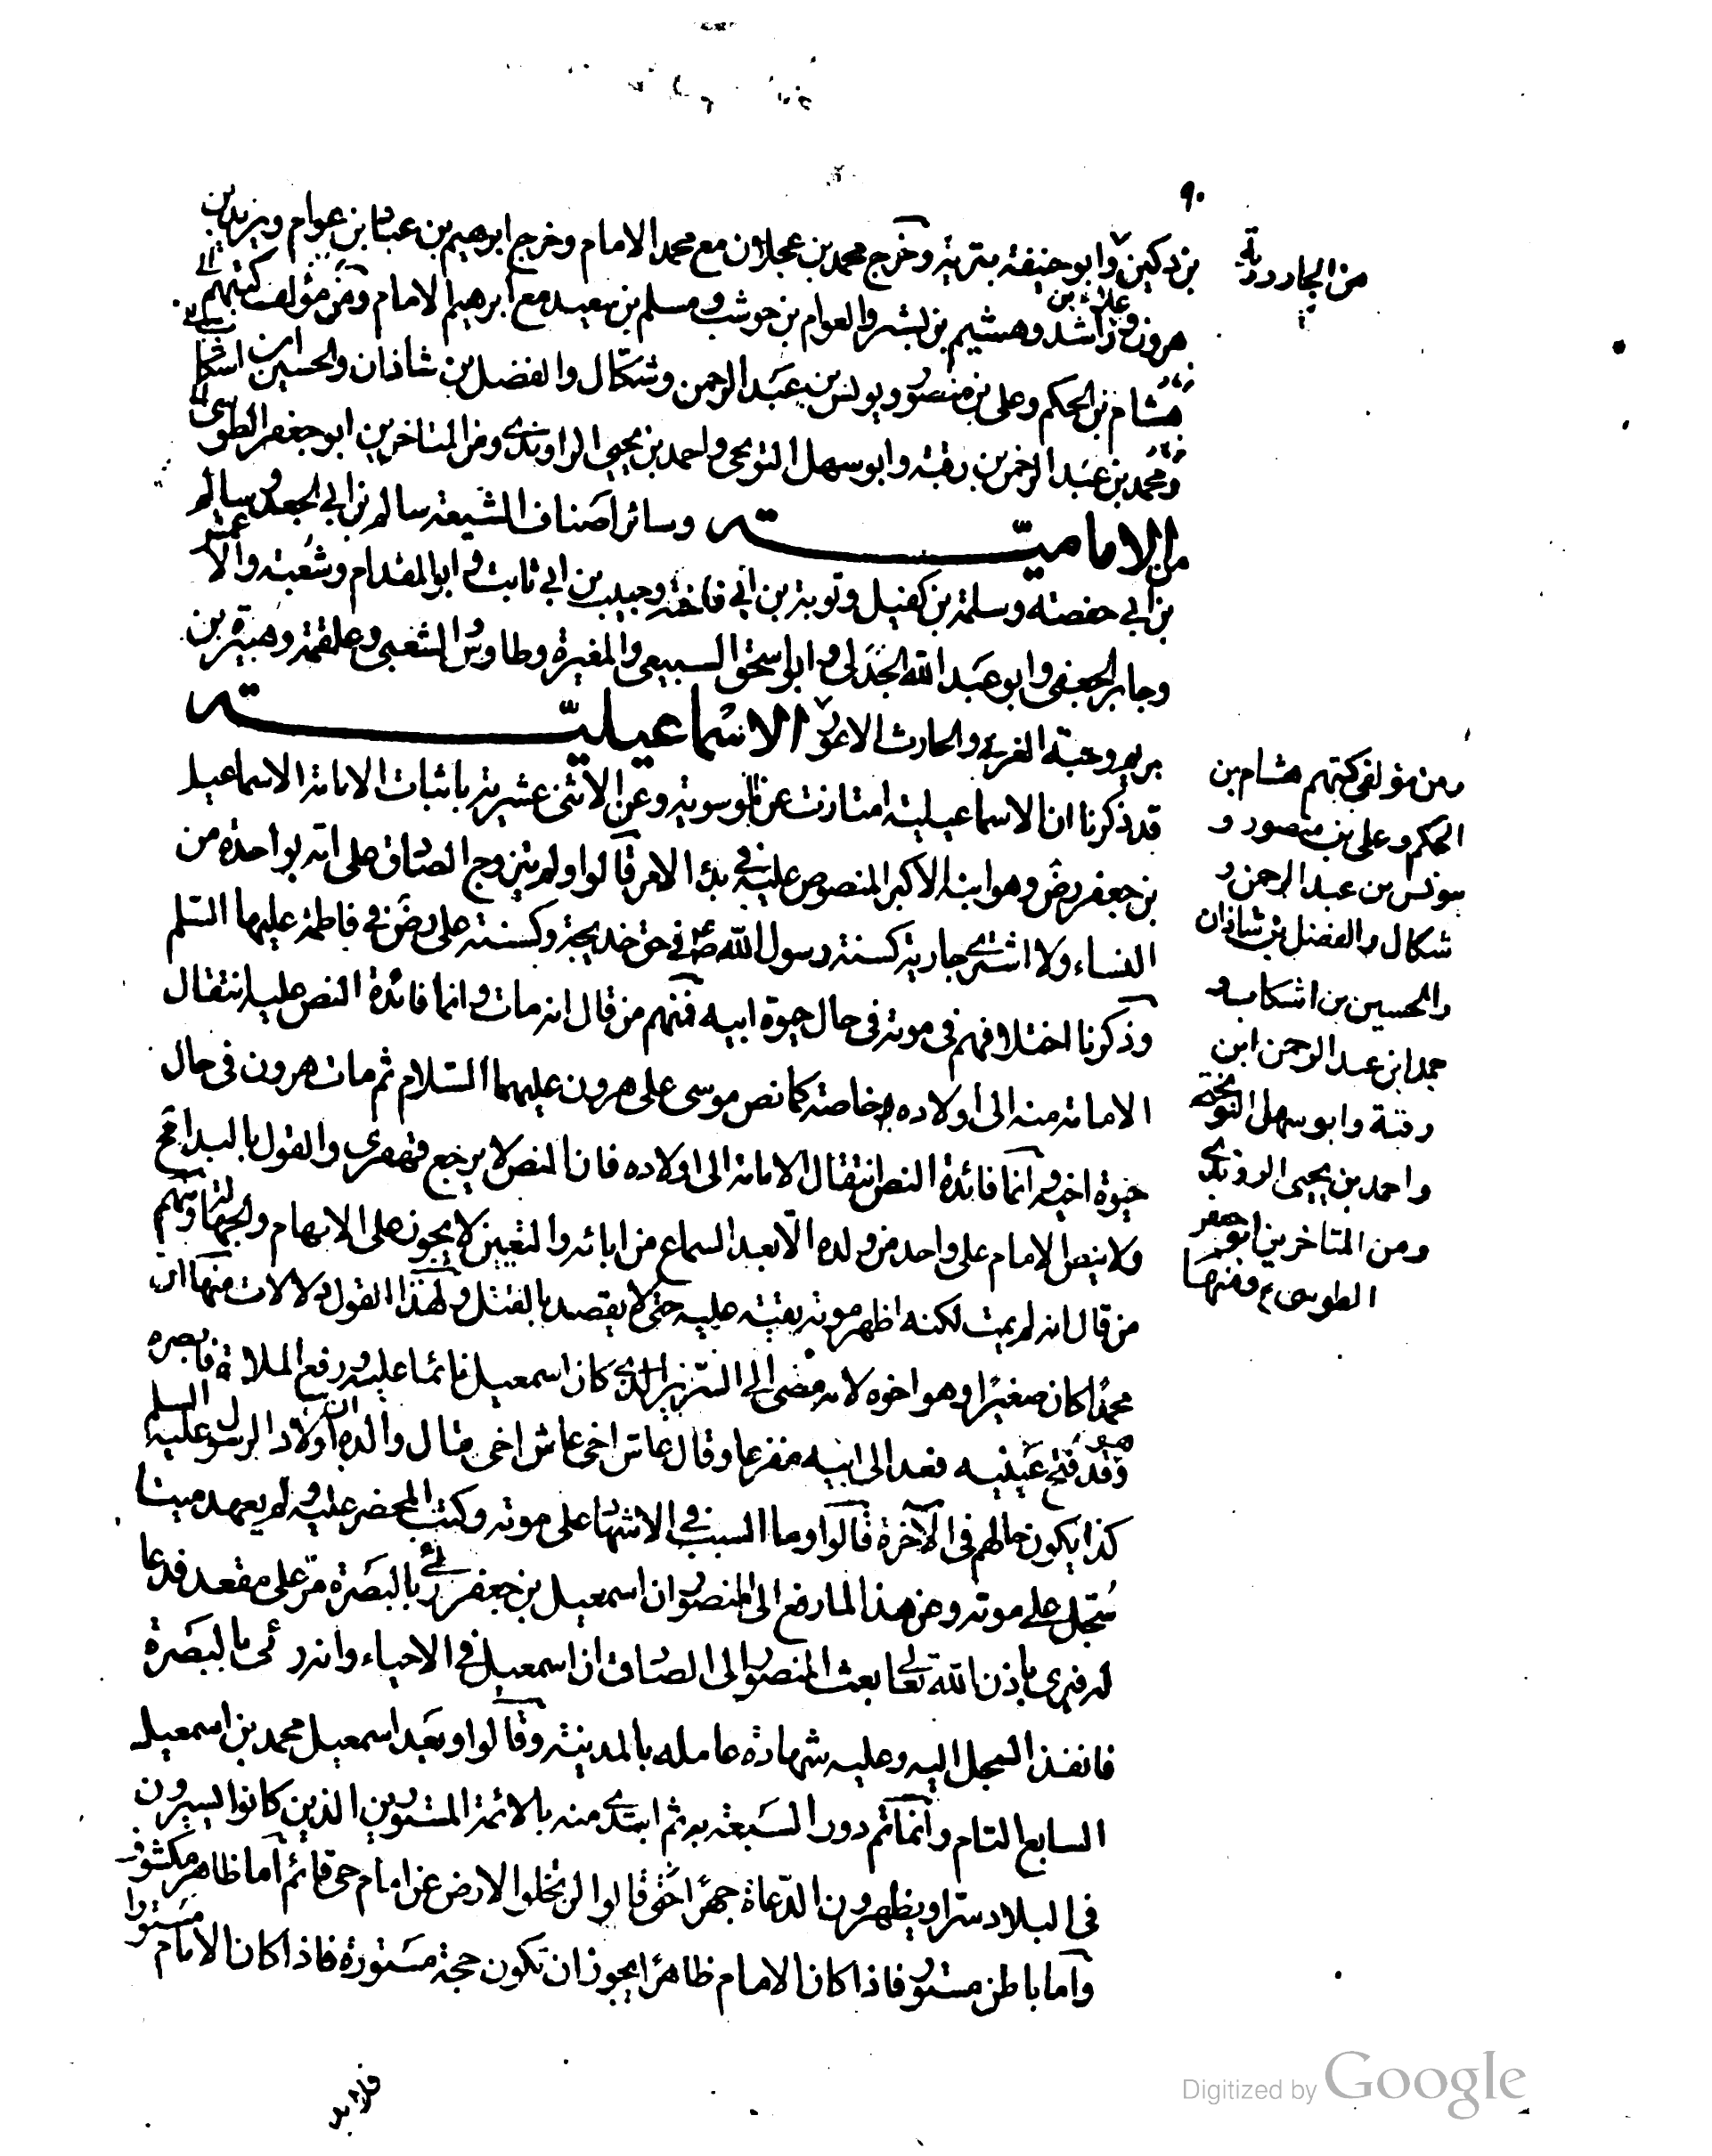 ٩٠
بن دكين وابو حنيفة بترية وخرج محمد بن عجلان مع محمد الامام وخرج ابرهيم بن عباد بن عوام ويزيد بن
هرون و راشد وهشيم بن بشر والعوام بن حوشب ومسلم بن سعيد مع ابرهيم الامام ومن مؤلفى كتبهم
هشام بن الحكم وعلى بن منصور ويونس بن عبد الرحمن وشكال والفضل بن شاذان والحسين ابن اشكاب
ومحمد بن عبد الرحمن بن رقبة وابو سهل النوبختى واحمد بن يحيى الراوندى ومن المتاخرين ابو جعفر الطوسى
من الامامية وسائر اصناف الشيعة سالم بن ابى الجعد وسالم
بن ابى حفصة وسلمة بن كفيل وتوبة بن ابى فاختة وحبيب بن ابى ثابت وابو المقدام وشعبة والاعمش
وجابر الجعفى وابو عبد الله الجدلى وابو اسحق السبيعى والمغيرة وطاوس والشعبى وعلقمة وهبيرة بن
بريم وحبة العرنى والحارث الاعور الاسماعيلية
قد ذكرنا ان الاسماعيلية امتازت عن الموسوية وعن الاثنى عشرية باثبات الامامة الاسماعيل
بن جعفر رض وهو ابنه الاكبر المنصوص عليه فى بدء الامر قالوا ولم يتزوج الصادق على امه بواحدة من
النساء ولا اشترى جارية كسنة رسول الله صلعم فى حق خديجة وكسنة على رض فى فاطمة عليها السلم
وذكرنا اختلافهم فى موته فى حال حيوة ابيه فمنهم من قال انه مات وانما فائدة النص عليه انتقال
الامامة منه الى اولاده خاصة كما نص موسى على هرون عليهما السلام ثم مات هرون فى حال
حيوة اخيه وانما فائدة النص انتقال الامامة الى اولاده فان النص لا يرجع قهقرى والقول بالبدا مح
ولا ينص الامام على واحد من ولده الا بعد السماع من ابائه والتعيين لا يجوز على الابهام والجهالة ومنهم
من قال انه لم يمت لكنه اظهر موته بقية عليه حتى لا يقصد بالقتل ولهذا القول دلالات منها ان
محمدا كان صغيرا وهو اخوه لامه مضى الى السرير الذى كان اسمعيل نائما عليه ورفع الملاة فابصره
وهو قد فتح عينيه فعدا الى ابيه مفزعا وقال عاش اخى عاش اخى قال والده ان اولاد الرسول عليه السلم
كذا يكون حالهم فى الآخرة قالوا وما السبب فى الاشهاد على موته وكتب المحضر عليه ولم يعهد ميتا
سجل على موته وعن هذا لما رفع الى المنصور ان اسمعيل بن جعفر رئى بالبصرة مر على مقعد فدعا
له فبرى باذن الله تعالى بعث المنصور الى الصادق ان اسمعيل فى الاحياء وانه رئى بالبصرة
فانفذ السجل اليه وعليه شهادة عامله بالمدينة وقالوا وبعد اسمعيل محمد بن اسمعيل
السابع التام وانما تم دور السبعة به ثم ابتدى منه بالائمة المستورين الذين كانوا يسيرون
فى البلاد سرا ويظهرون الدعاة جهرا قالوا لن تخلوا الارض عن امام حى قائم اما ظاهر مكشوف
واما باطن مستور فاذا كان الامام ظاهرا يجوز ان تكون حجة مستورة فاذا كان الامام مستورا
فلا بد
من الجارودية
ومن مؤلفى كتبهم هشام بن
الحكم وعلى بن منصور و
يونس بن عبد الرحمن و
شكال والفضل بن شاذان
والحسين بن اشكاب و
محمد ابن عبد الرحمن ابن
رقبة وابو سهل النوبختى
واحمد بن يحيى الروندى
ومن المتاخرين ابو جعفر
الطوسى
Digitized by Google